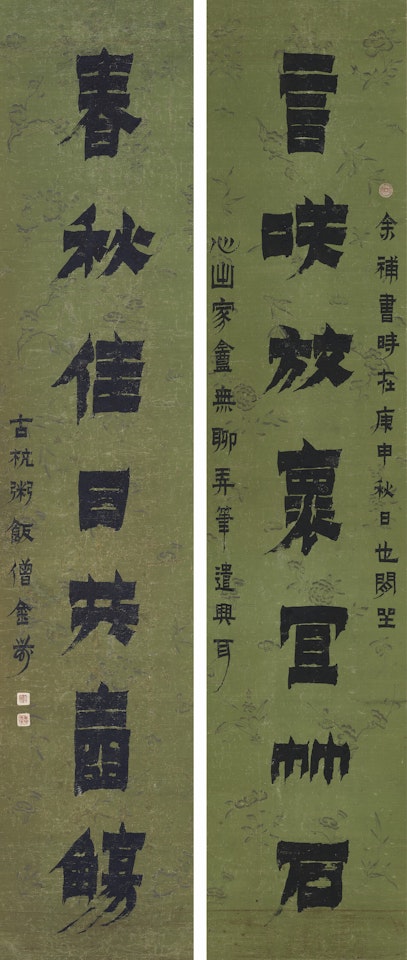 言咲放褱宜竹石
余補書時在庚申秋日也閒坐
心出家盦無聊弄筆遣興耳
春秋佳日共壺觴
古杭粥飯僧金農